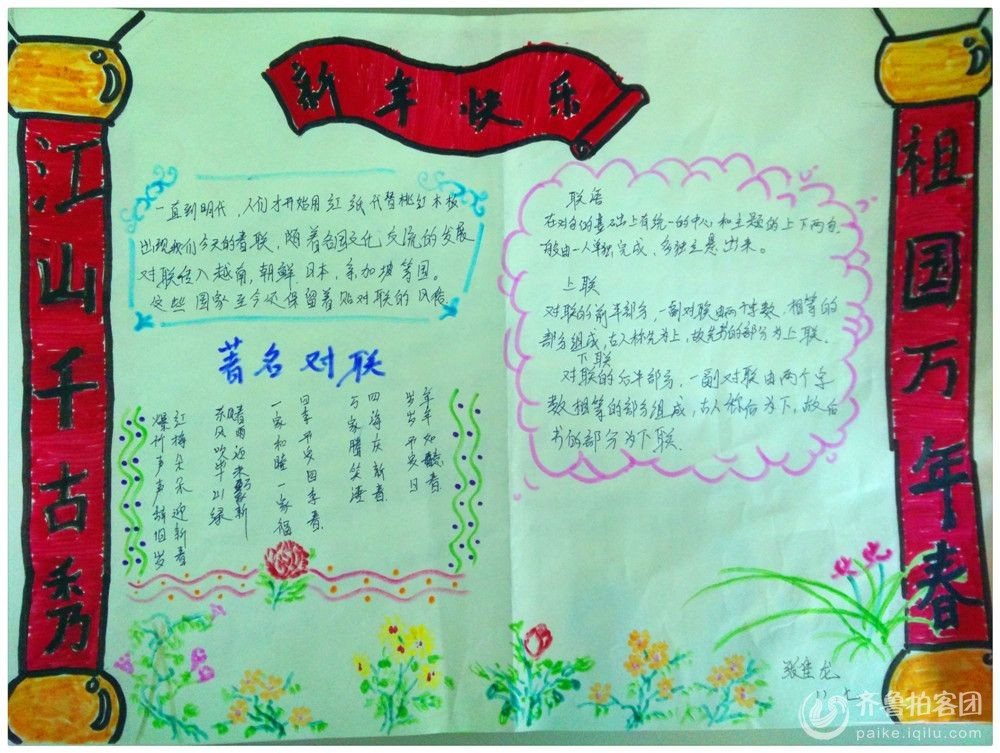 新年快乐
江山千古秀
祖国万年春
一直到明代，人们才开始用红纸代替桃红木板
出现我们今天的春联，随着各国文化交流的发展
对联传入越南，朝鲜，日本，新加坡等国。
这些国家至今还保留着贴对联的风格
著名对联
年年如意春
岁岁平安日
四海庆新春
万家腾笑语
四季平安四季春
一家和睦一家福
春雨还来
东风吹早山绿
红梅朵朵迎新春
爆竹声声辞旧岁
联语
在对句的基础上有统一的中心和主题的上下两句
般由一人单独完成，多独立悬出来。
上联
对联的前半部分，一副对联由两个字数相等的
部分组成，古人称先为上，故先书的部分为上联．
下联
对联的后半部分，一副对联由两个字
数相等的部分组成，古人称后为下，故后
书的部分为下联．
龙
齐鲁拍客团
paike.iqilu.com